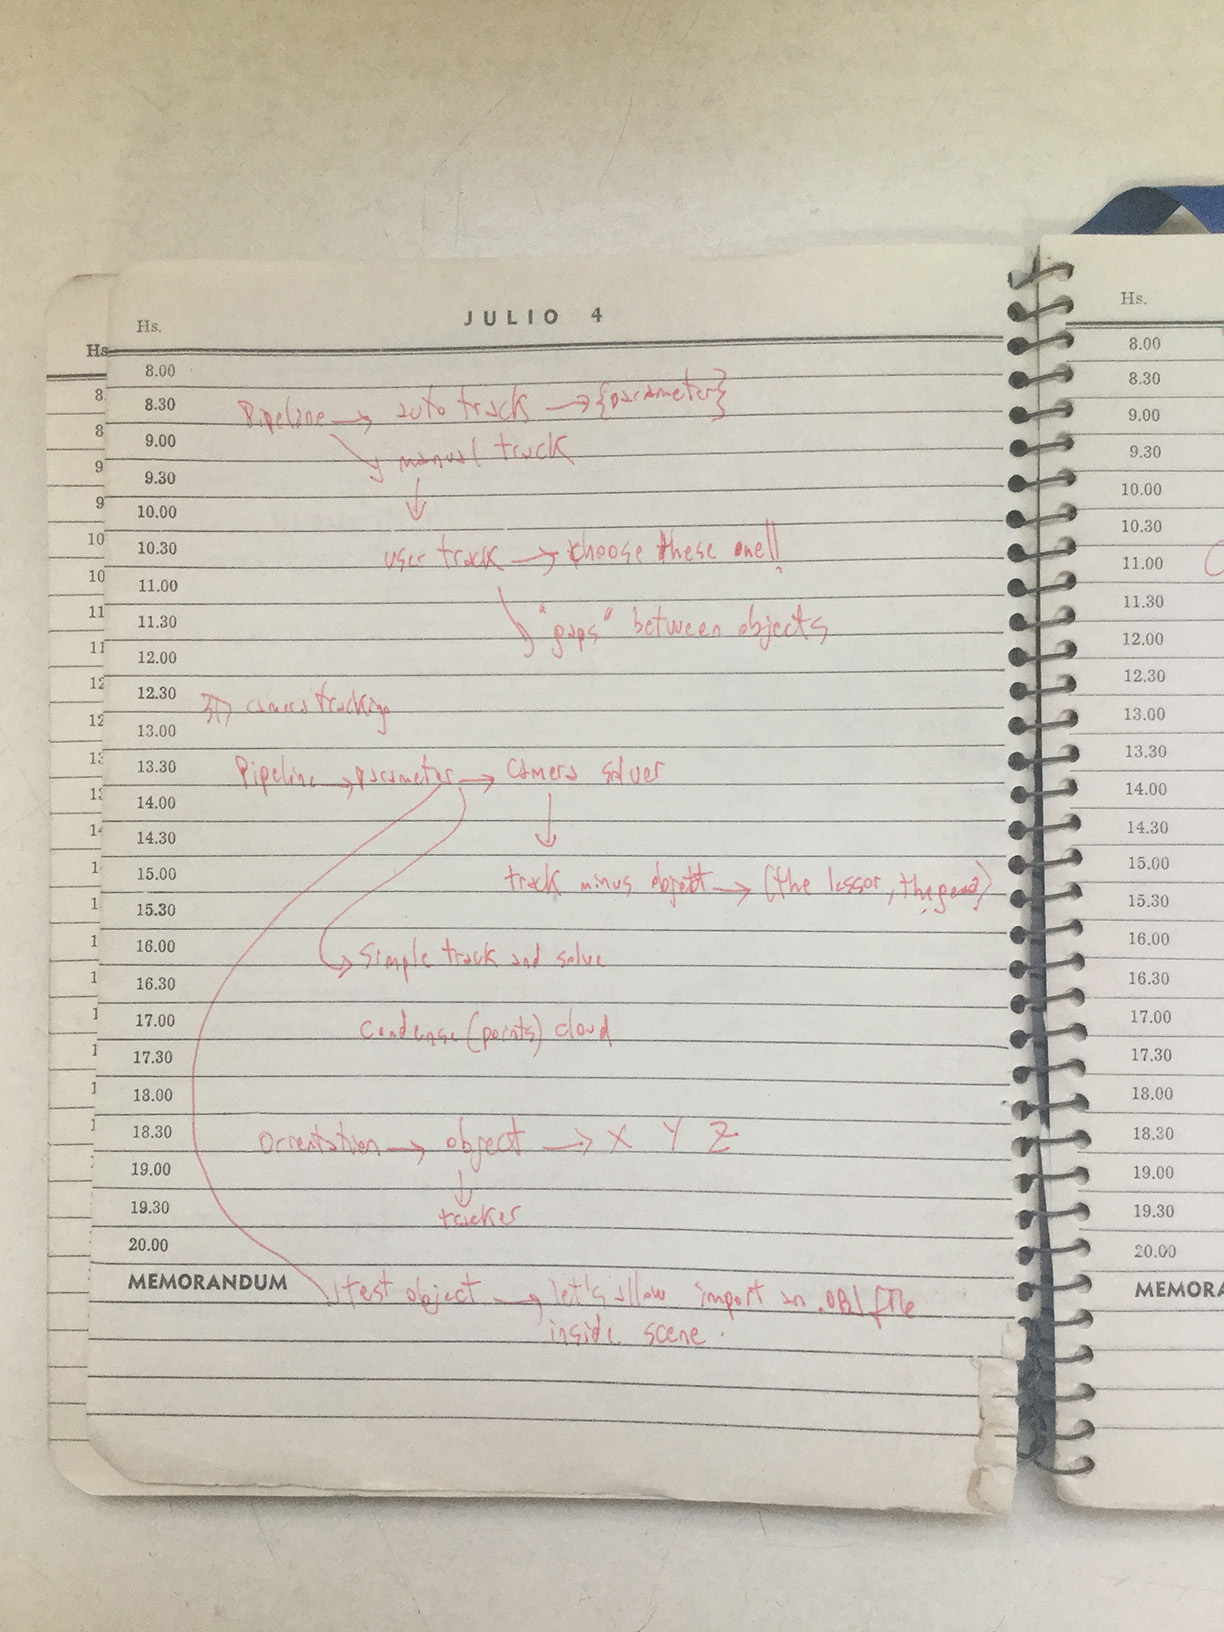 JULIO 4
Hs.
8.00
8.30 Pipeline → auto track → {parameter}
9.00 manual track
9.30
10.00
10.30 user track → choose these one!!
11.00
11.30 "gaps" between objects
12.00
12.30 camera tracking
13.00
13.30 Pipeline → parameter → camera solver
14.00
14.30
15.00 track minus object → (the lessor, the
15.30
16.00 simple track and solve
16.30
17.00 condense (points) cloud
17.30
18.00
18.30 orientation → object → X Y Z
19.00
19.30 tracker
20.00
MEMORANDUM test object → let's allow import an .OBJ file
inside scene.
Hs
8
8
9
9
10
10
11
11
12
12
13
13
14
Hs.
8.00
8.30
9.00
9.30
10.00
10.30
11.00
11.30
12.00
12.30
13.00
13.30
14.00
14.30
15.00
15.30
16.00
16.30
17.00
17.30
18.00
18.30
19.00
19.30
20.00
MEMORA